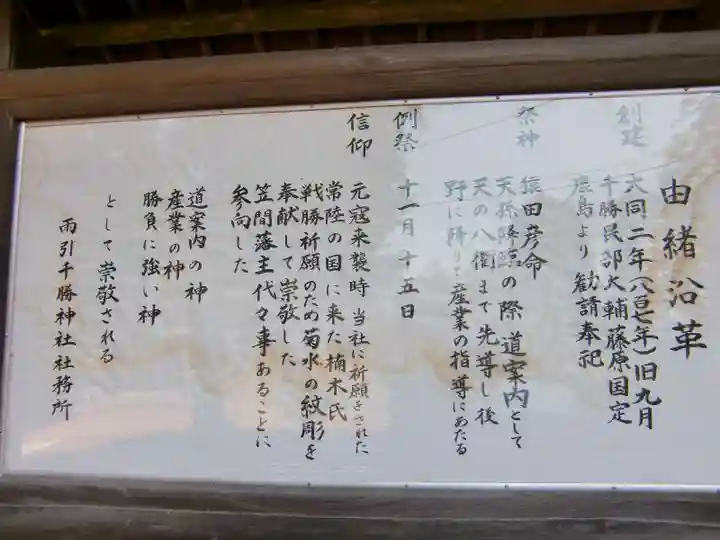 由緒沿革
創建 大同二年(八百七年)旧九月
千勝民部大輔藤原国定
鹿島より勧請奉祀
祭神 猿田彦命
天孫降臨の際道案内として
天の八衢まで先導し後
野に降りて産業の指導にあたる
例祭 十一月十五日
信仰 元寇来襲時当社に祈願をされた
常陸の国に来た楠木氏
戦勝祈願のため菊水の紋彫を
奉献して崇敬した
笠間藩主代々事あることに
参向した
道案内の神
産業の神
勝負に強い神
として崇敬される
雨引千勝神社社務所